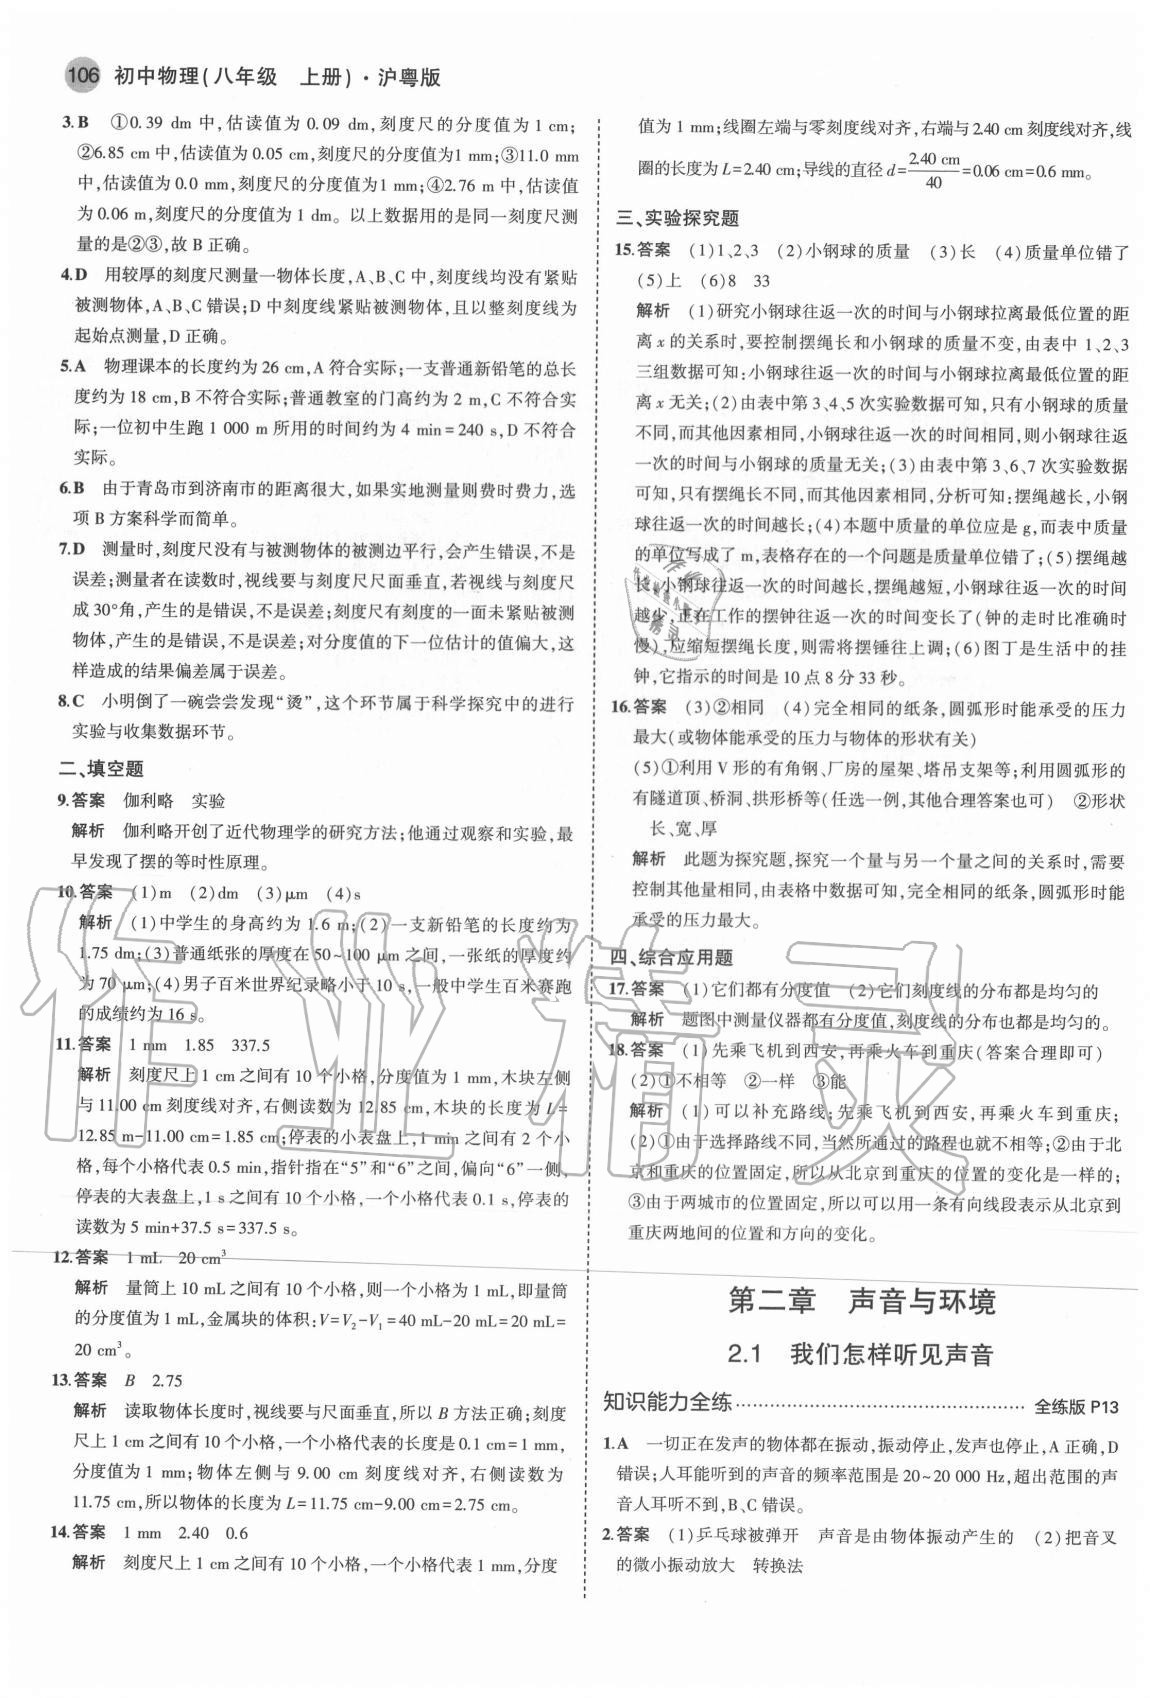 106 初中物理(八年级 上册)·沪粤版
3.B ①0.39 dm 中,估读值为 0.09 dm,刻度尺的分度值为 1 cm;
②6.85 cm 中,估读值为 0.05 cm,刻度尺的分度值为1 mm;③11.0 mm
中,估读值为 0.0 mm,刻度尺的分度值为1 mm;④2.76 m 中,估读值
为 0.06 m,刻度尺的分度值为 1 dm。以上数据用的是同一刻度尺测
量的是②③,故 B 正确。
4.D 用较厚的刻度尺测量一物体长度,A、B、C 中,刻度线均没有紧贴
被测物体,A、B、C 错误;D 中刻度线紧贴被测物体,且以整刻度线为
起始点测量,D 正确。
5.A 物理课本的长度约为 26 cm,A 符合实际;一支普通新铅笔的总长
度约为 18 cm,B 不符合实际;普通教室的门高约为 2 m,C 不符合实
际;一位初中生跑 1 000 m 所用的时间约为 4 min=240 s,D 不符合
实际。
6.B 由于青岛市到济南市的距离很大,如果实地测量则费时费力,选
项 B 方案科学而简单。
7.D 测量时,刻度尺没有与被测物体的被测边平行,会产生错误,不是
误差;测量者在读数时,视线要与刻度尺尺面垂直,若视线与刻度尺
成 30°角,产生的是错误,不是误差;刻度尺有刻度的一面未紧贴被测
物体,产生的是错误,不是误差;对分度值的下一位估计的值偏大,这
样造成的结果偏差属于误差。
8.C 小明倒了一碗尝尝发现“烫”,这个环节属于科学探究中的进行
实验与收集数据环节。
二、填空题
9.答案 伽利略 实验
解析 伽利略开创了近代物理学的研究方法;他通过观察和实验,最
早发现了摆的等时性原理。
10.答案 (1)m (2)dm (3)μm (4)s
解析 (1)中学生的身高约为 1.6 m;(2)一支新铅笔的长度约为
1.75 dm;(3)普通纸张的厚度在 50~100 μm 之间,一张纸的厚度约
为 70 μm;(4)男子百米世界纪录略小于 10 s,一般中学生百米赛跑
的成绩约为 16 s。
11.答案 1 mm 1.85 337.5
解析 刻度尺上 1 cm 之间有 10 个小格,分度值为 1 mm,木块左侧
与 11.00 cm 刻度线对齐,右侧读数为 12.85 cm,木块的长度为 L=
12.85 m-11.00 cm=1.85 cm;停表的小表盘上,1 min 之间有 2 个小
格,每个小格代表 0.5 min,指针指在“5”和“6”之间,偏向“6”一侧,
停表的大表盘上,1 s 之间有 10 个小格,一个小格代表 0.1 s,停表的
读数为 5 min+37.5 s=337.5 s。
12.答案 1 mL 20 cm³
解析 量筒上 10 mL 之间有 10 个小格,则一个小格是 1 mL,量筒
的分度值为 1 mL,金属块的体积:V=V₂-V₁=40 mL-20 mL=20 mL=
20 cm³。
13.答案 B 2.75
解析 读取物体长度时,视线要与尺面垂直,所以 B 方法正确;刻度
尺上 1 cm 之间有 10 个小格,一个小格代表的长度是 0.1 cm=1 mm,
分度值为 1 mm;物体左侧与 9.00 cm 刻度线对齐,右侧读数为
11.75 cm,所以物体的长度为 L=11.75 cm-9.00 cm=2.75 cm。
14.答案 1 mm 2.40 0.6
解析 刻度尺上 1 cm 之间有 10 个小格,一个小格代表 1 mm,分度
值为 1 mm;线圈左端与零刻度线对齐,右端与 2.40 cm 刻度线对齐,线
圈的长度为 L=2.40 cm;导线的直径 d=2.40 cm/40=0.06 cm=0.6 mm。
三、实验探究题
15.答案 (1)1、2、3 (2)小钢球的质量 (3)长 (4)质量单位错了
(5)上 (6)8 33
解析 (1)研究小钢球往返一次的时间与小钢球拉离最低位置的距
离 x 的关系时,要控制摆绳长和小钢球的质量不变,由表中 1、2、3
三组数据可知:小钢球往返一次的时间与小钢球拉离最低位置的距
离 x 无关;(2)由表中第 3、4、5 次实验数据可知,只有小钢球的质量
不同,而其他因素相同,小钢球往返一次的时间相同,则小钢球往返
一次的时间与小钢球的质量无关;(3)由表中第 3、6、7 次实验数据
可知,只有摆绳长不同,而其他因素相同,分析可知:摆绳越长,小钢
球往返一次的时间越长;(4)本题中质量的单位应是 g,而表中质量
的单位写成了 m,表格存在的一个问题是质量单位错了;(5)摆绳越
长,小钢球往返一次的时间越长,摆绳越短,小钢球往返一次的时间
越少,正在工作的摆钟往返一次的时间变长了(钟的走时比准确时
慢),应缩短摆绳长度,则需将摆锤往上调;(6)图丁是生活中的挂
钟,它指示的时间是 10 点 8 分 33 秒。
16.答案 (3)②相同 (4)完全相同的纸条,圆弧形时能承受的压力
最大(或物体能承受的压力与物体的形状有关)
(5)①利用 V 形的有角钢、厂房的屋架、塔吊支架等;利用圆弧形的
有隧道顶、桥洞、拱形桥等(任选一例,其他合理答案也可) ②形状
长、宽、厚
解析 此题为探究题,探究一个量与另一个量之间的关系时,需要
控制其他量不变,由表格中数据可知,完全相同的纸条,圆弧形时能
承受的压力最大。
四、综合应用题
17.答案 (1)它们都有分度值 (2)它们刻度线的分布都是均匀的
解析 题图中测量仪器都有分度值,刻度线的分布也都是均匀的。
18.答案 (1)先乘飞机到西安,再乘火车到重庆(答案合理即可)
(2)①不相等 ②一样 ③能
解析 (1)可以补充路线:先乘飞机到西安,再乘火车到重庆;
(2)①由于选择路线不同,当然所通过的路程也就不相等;②由于北
京和重庆的位置固定,所以从北京到重庆的位置的变化是一样的;
③由于两城市的位置固定,所以可以用一条有向线段表示从北京到
重庆两地间的位置和方向的变化。
第二章 声音与环境
2.1 我们怎样听见声音
知识能力全练 全练版 P13
1.A 一切正在发声的物体都在振动,振动停止,发声也停止,A 正确,D
错误;人耳能听到的声音的频率范围是 20~20 000 Hz,超出范围的声
音人耳听不到,B、C 错误。
2.答案 (1)乒乓球被弹开 声音是由物体振动产生的 (2)把音叉
的微小振动放大 转换法
作业精灵